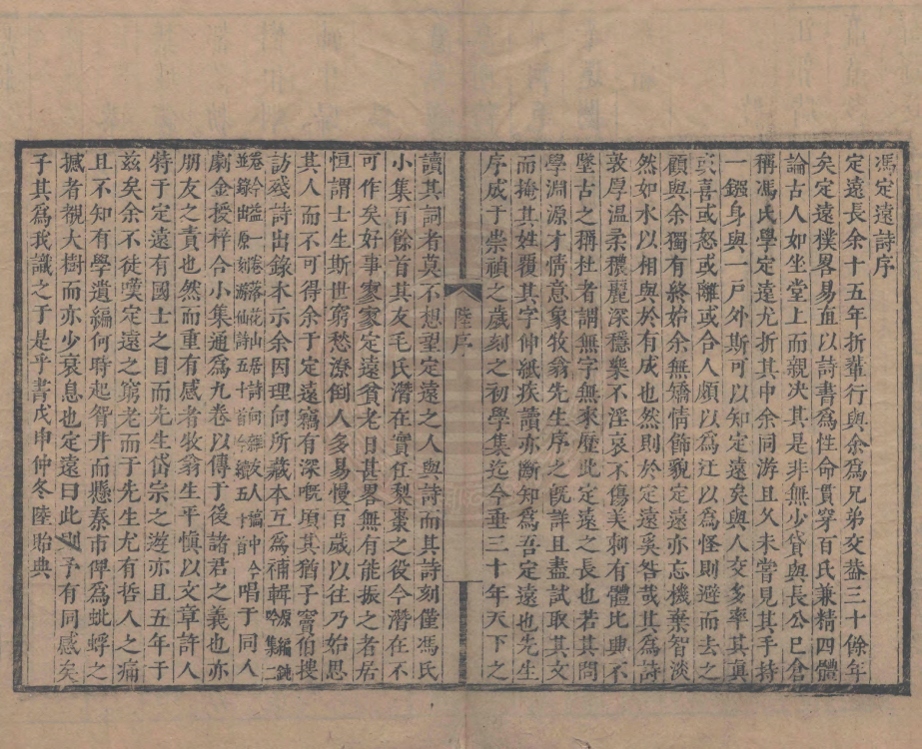 馮定遠詩序
定遠長余十五年折輩行與余為兄弟交葢三十餘年
矣定遠樸畧易直以詩書為性命貫穿百氏兼精四體
論古人如坐堂上而親决其是非無少貸與長公已倉
稱馮氏學定遠尤折其中余同游且久未嘗見其手持
一錢身與一戸外斯可以知定遠矣與人交多率其真
或喜或怒或離或合人頗以為迂以為怪則避而去之
顧與余獨有終始余無矯情飾貌定遠亦忘機棄智淡
然如水以相與於有成也然則於定遠奚咎哉其為詩
敦厚温柔穠麗深穩樂不淫哀不傷美刺有體比興不
墜古之稱杜者謂無字無來歷此定遠之長也若其問
學淵源才情意象牧翁先生序之旣詳且盡試取其文
而掩其姓覆其字伸紙疾讀亦斷知為吾定遠也先生
序成于崇禎之歲刻之初學集迄今垂三十年天下之
陸序
讀其詞者莫不想望定遠之人與詩而其詩刻僅馮氏
小集百餘首其友毛氏潛在實任梨棗之役今潛在不
可作矣好事寥寥定遠貧老日甚畧無有能振之者居
恒謂士生斯世窮愁潦倒人多易慢百歲以往乃始思
其人而不可得余于定遠竊有深嘅頃其猶子竇伯摟
訪殘詩出錄本示余因理向所藏本互為補輯
卷今益一卷落花山居詩向
並錄出原刻游仙詩五十首續五十首
唱于同人
劇金授梓合小集通為九卷以傳于後諸君之義也亦
朋友之責也然而重有感者牧翁生平愼以文章許人
特于定遠有國士之目而先生岱宗之遊亦且五年于
茲矣余不徒嘆定遠之窮老而于先生尤有哲人之痛
且不知有學遺編何時起眢井而懸秦市俾為蚍蜉之
撼者覩大樹而亦少衰息也定遠曰此則予有同感矣
子其為我識之于是乎書戊申仲冬陸貽典